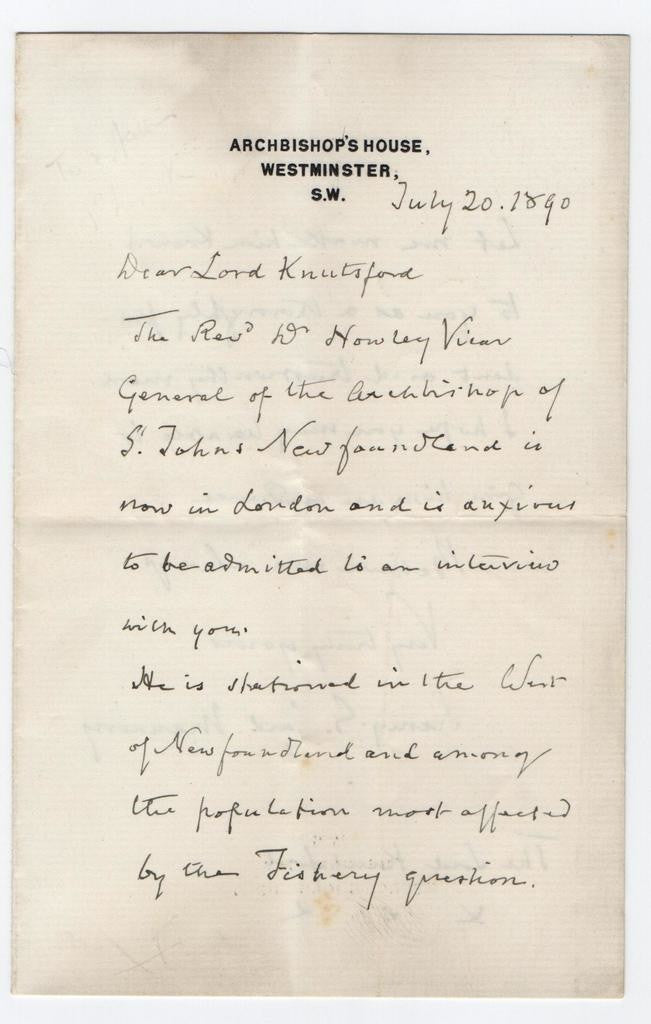 ARCHBISHOP'S HOUSE,
WESTMINSTER,
S.W.
July 20. 1890
Dear Lord Knutsford
The Revd Dr Howley Vicar
General of the Archbishop of
St. Johns Newfoundland is
now in London and is anxious
to be admitted to an interview
with you.
He is stationed in the West
of Newfoundland and among
the population most affected
by the Fishery question.